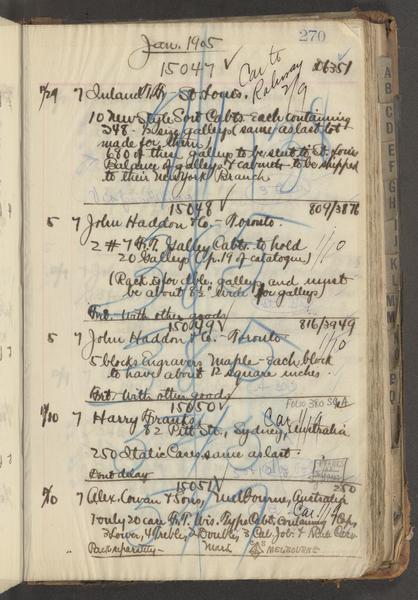 Jan. 1905
270
15047 ✓ Car to Rahway 2/9
7 Inland T.F. St. Louis.
10 New Style Sort Cabts. each containing
348 - galleys (same as last lot
made for them)
680 of these galleys to be sent to St. Louis
Balance of galleys & cabinets to be shipped
to their New York Branch
15048 ✓ 809/3876
5 7 John Haddon & Co. - Toronto. 1/10
2 # 7 F.T. Galley Cabts. to hold
20 Galleys (p. 19 of catalogue)
(Rack is for dble. galleys and must
be about 8½" wide for galleys)
Frt. with other goods
15049 ✓ 816/3949
5 7 John Haddon & Co. - Toronto. 1/10
5 blocks Engravers Maple - each block
to have about 12 square inches.
Frt. with other goods
15050 ✓ Folio 380
7 Harry Franks, Car 1/19
82 Pitt St., Sydney, Australia
250 Italic Cases same as last.
Dont delay
250
15051 ✓
7 Alex. Cowan & Sons, Melbourne, Australia
Car 1/19
1 only 20 case F.T. Wis. Type Cabt. containing
3 Lower, 4 Treble, 2 Double, 3 Cal. Job &
Pack separately - Mark MELBOURNE
A
B
C
D
E
F
G
H
I
J
K
L
M